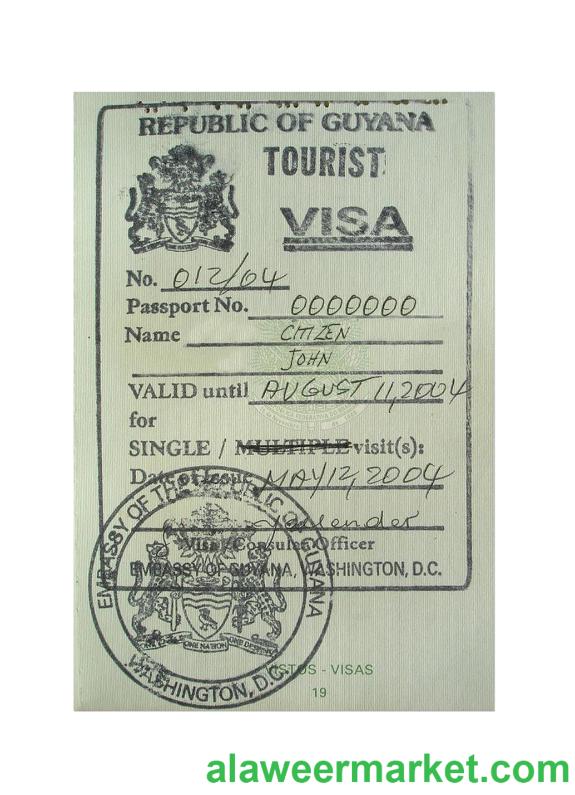 REPUBLIC OF GUYANA
TOURIST
VISA
No. 012/04
Passport No. 0000000
Name CITIZEN
JOHN
VALID until AUGUST 11, 2004
for
SINGLE / MULTIPLE visit(s):
Date of Issue MAY 12, 2004
Visa/Consular Officer
EMBASSY OF GUYANA, WASHINGTON, D.C.
EMBASSY OF THE REPUBLIC OF GUYANA
ONE NATION ONE DESTINY
WASHINGTON, D.C.
VISTOS - VISAS
19
alaweermarket.com